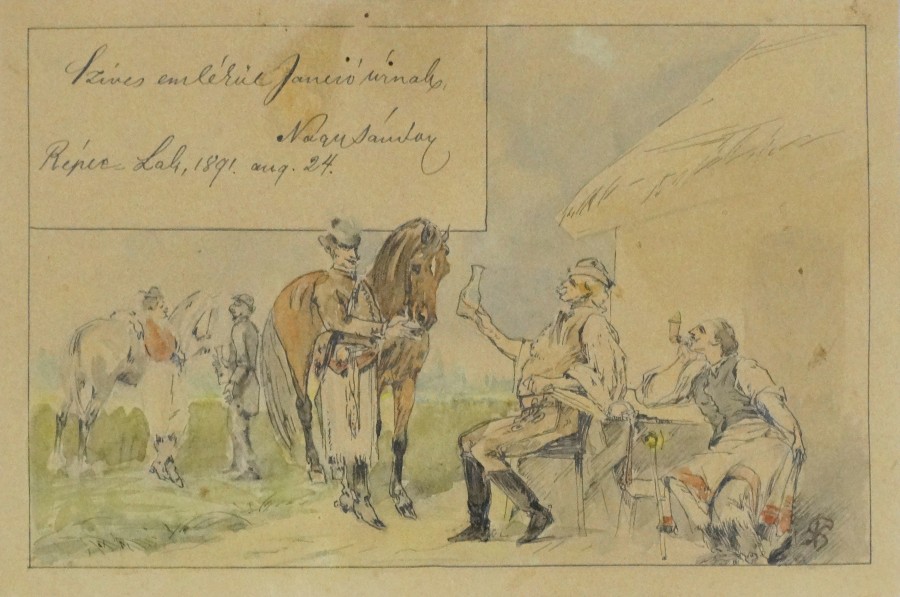 Szives emlékül Jancsó úrnak,
Nagy Sándor
Répcze Lak, 1891. aug. 24.